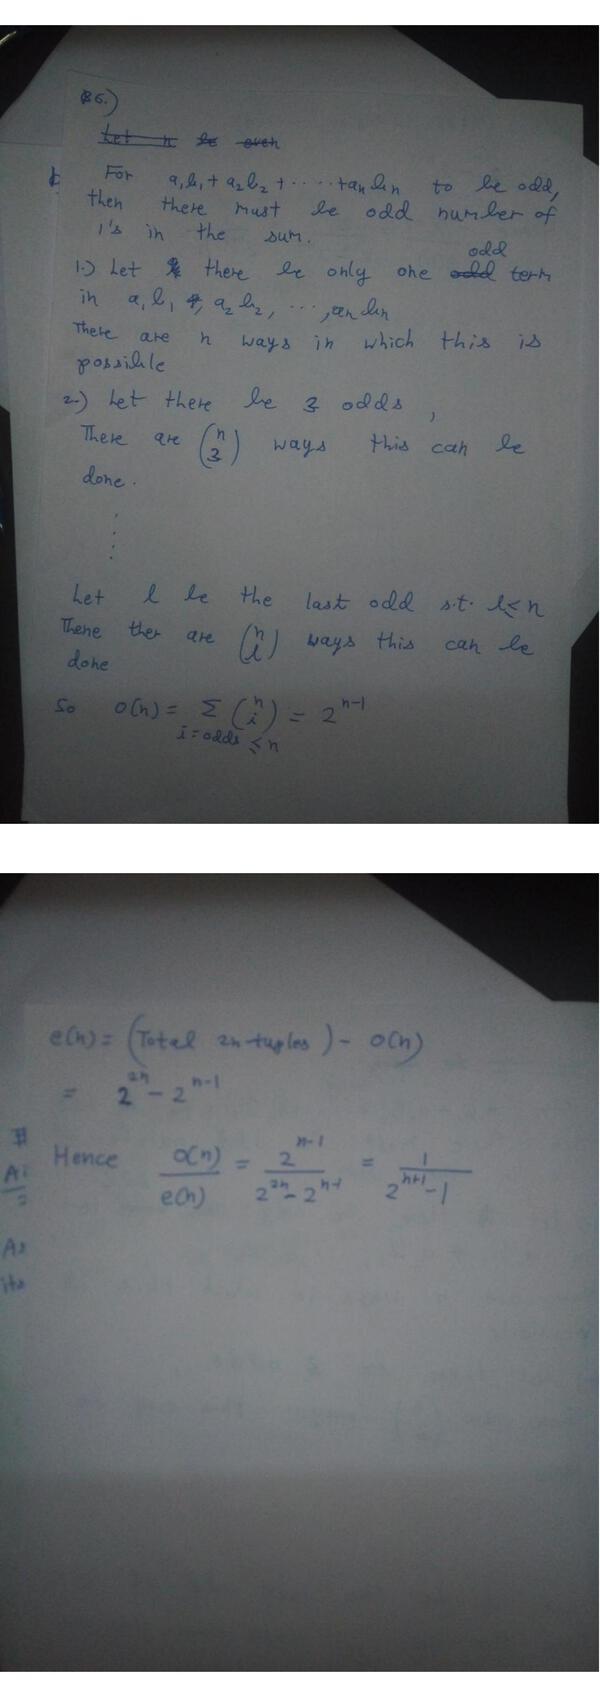 B6.)
Let n be even
For a₁b₁ + a₂b₂ + ..... + aₙbₙ to be odd,
then there must be odd number of
1's in the sum.
odd
1.) Let there be only one odd term
in a₁b₁, a₂b₂, ..., aₙbₙ
There are n ways in which this is
possible
2.) Let there be 3 odds,
There are (n 3) ways this can be
done.
⋮
Let l be the last odd s.t. l ≤ n
There ther are (n l) ways this can be
done
So O(n) = Σ (n i) = 2^(n-1)
i = odds ≤ n
e(n) = (Total 2n-tuples) - O(n)
= 2^(2n) - 2^(n-1)
Hence O(n)/e(n) = 2^(n-1)/(2^(2n) - 2^(n-1)) = 1/(2^(n+1) - 1)
Ai
As
its